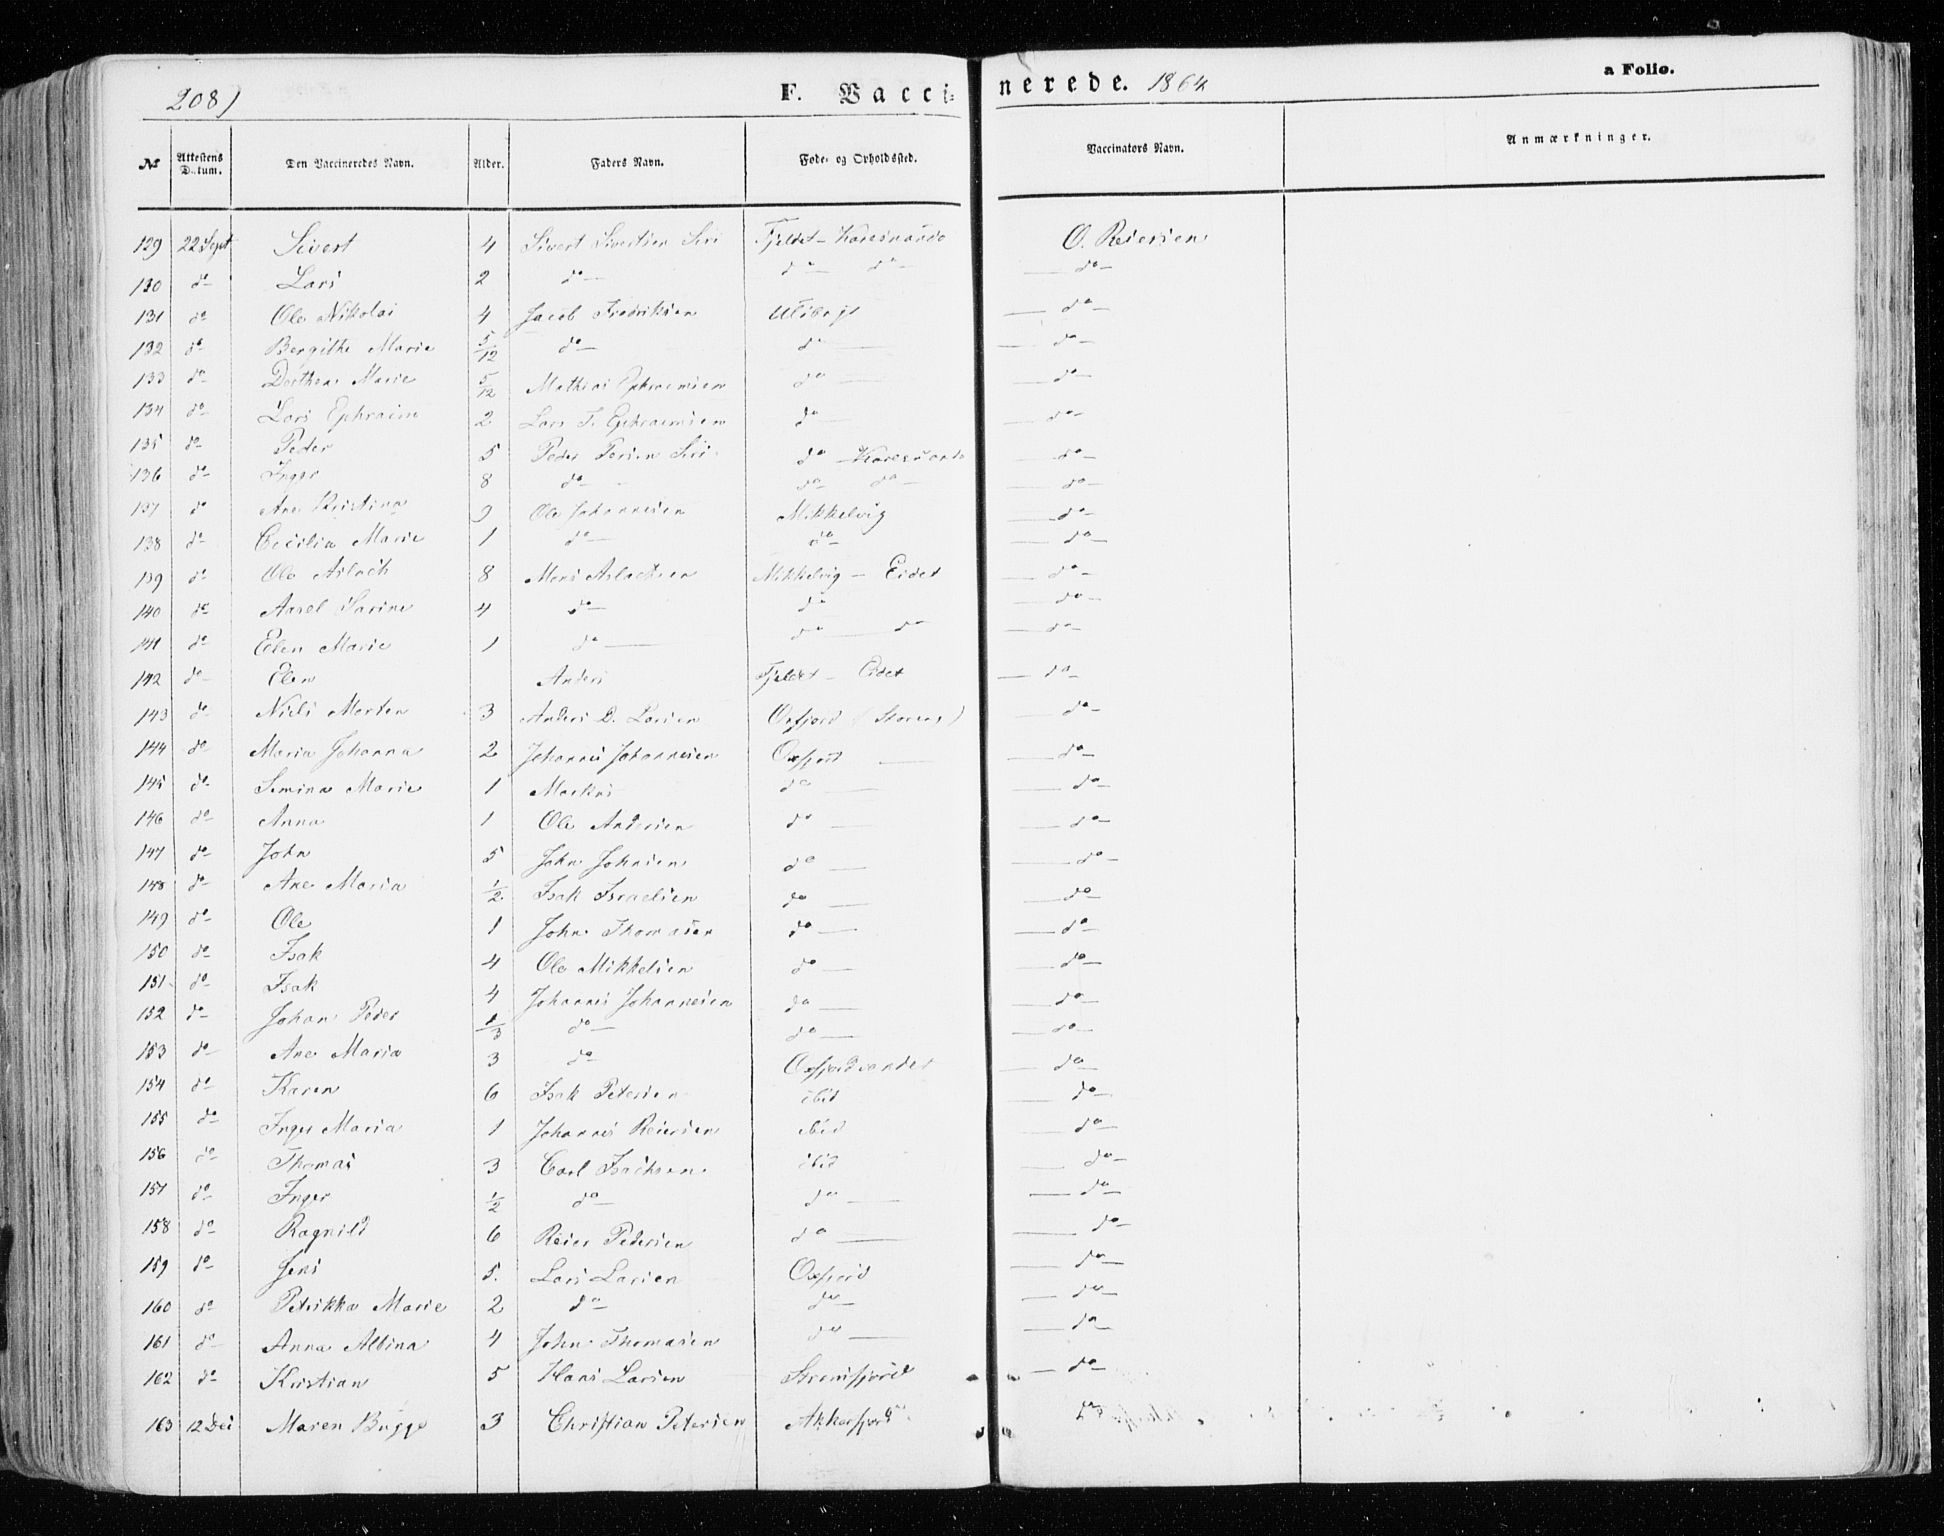 208)
F. Vacci-
nerede. 1864
a Folio.
№ Attestens Datum. Den Vaccineredes Navn. Alder. Faders Navn. Føde- og Opholdssted. Vaccinators Navn. Anmærkninger.
129 22 Sept Sivert 4 Sivert Sivertsen Siri Fjeldet - Karesuando O. Reiersen
130 do Lars 2 do do do do
131 do Ole Nikolai 4 Jacob Fredriksen do
132 do Bergithe Marie 5/12 do do do
133 do Dorthea Marie 5/12 Mathias Ephraimsen do do
134 do Lars Ephraim 2 Lars T. Ephraimsen do do
135 do Peder 5 Peder Persen Siri do Karesuando do
136 do Inger 8 do do do do
137 do Ane Kristina 9 Ole Johannesen Mikkelvig do
138 do Cecilia Marie 1 do do do
139 do Ole Aslach 8 Mons Aslachsen Mikkelvig - Eidet do
140 do Aarel Sarine 4 do do do
141 do Elen Marie 1 do do do do
142 do Elen Anders Fjeldet - Eidet do
143 do Niels Morten 3 Anders D. Larsen Oxfjord (Stornes) do
144 do Maria Johanna 2 Johannes Johannesen Oxfjord do
145 do Semina Marie 1 Markus do do
146 do Anna 1 Ole Andersen do do
147 do John 5 John Johnsen do do
148 do Ane Maria 1/2 Isak Israelsen do do
149 do Ole 1 John Thomasen do do
150 do Isak 4 Ole Mikkelsen do do
151 do Isak 4 Johannes Johannesen do do
152 do Johan Peder 1/3 do do do
153 do Ane Maria 3 do Oxfjordvandet do
154 do Karen 6 Isak Petersen ibid do
155 do Inger Maria 1 Johannes Reiersen ibid do
156 do Thomas 3 Carl Isachsen ibid do
157 do Inger 1/2 do do do
158 do Ragnild 6 Reier Pedersen do do
159 do Jens 5. Lars Larsen Oxfjord do
160 do Petrikka Marie 2 do do do
161 do Anna Albina 4 John Thomasen do do
162 do Kristian 5 Hans Larsen Stromsfjord do
163 12 Dec Maren Bugge 3 Christian Petersen Akkarfjord do